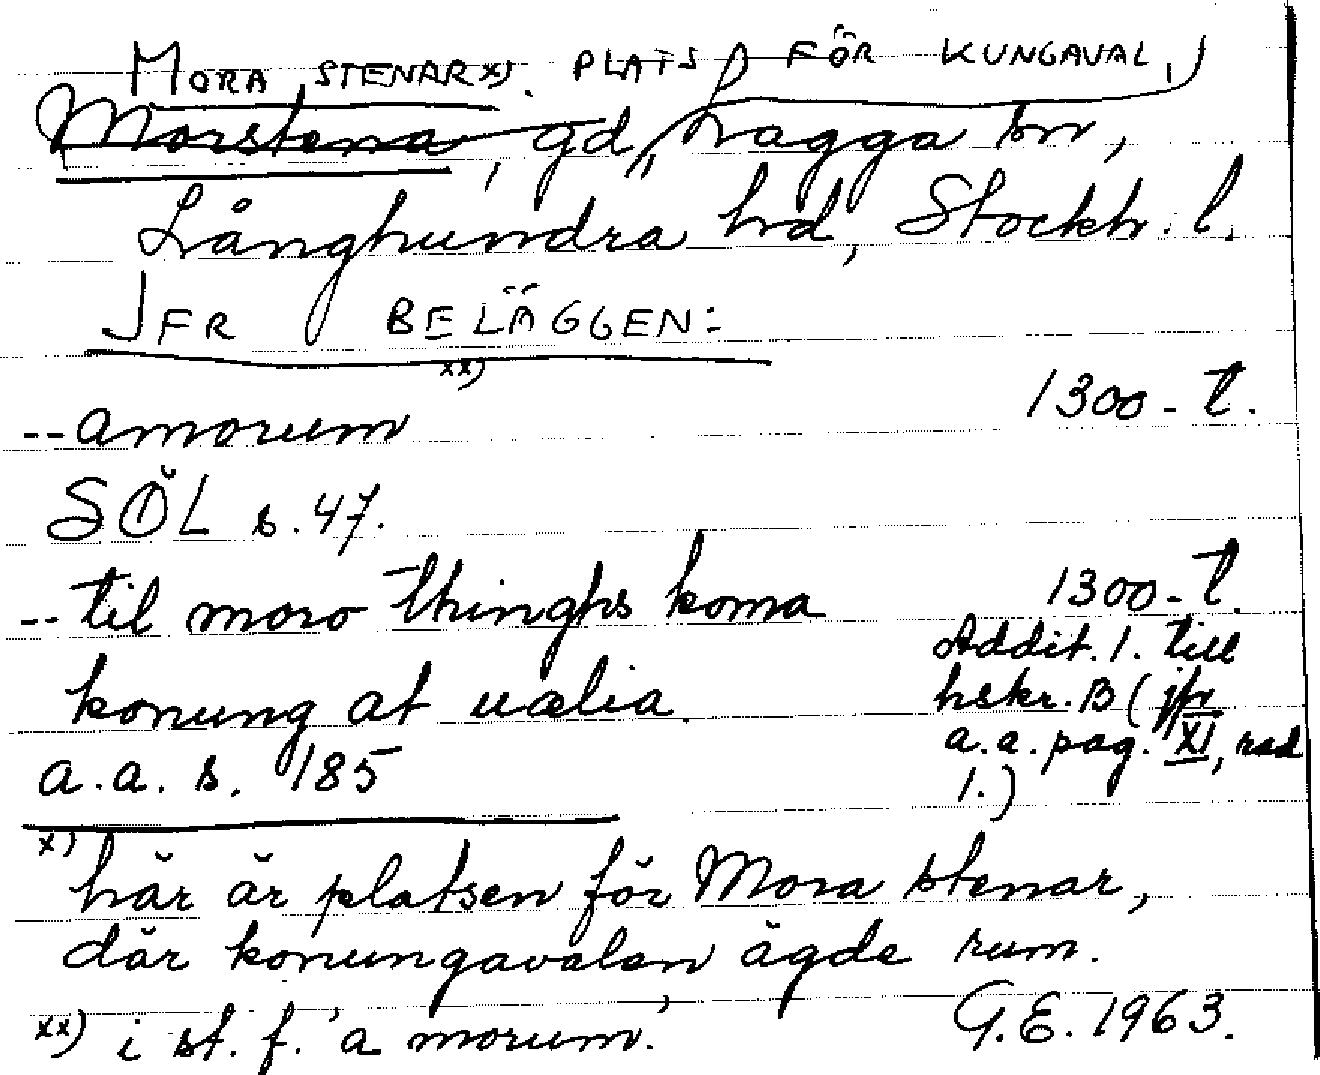 MORA STENAR x). PLATS FÖR KUNGAVAL,
Morstena, gd, Lagga sn,
Långhundra hd, Stockh. l.
JFR BELÄGGEN:
--amorum xx) 1300-t.
SÖL s. 47.
--til moro thinghs koma 1300-t.
konung at uælia
Addit. 1. till
hskr. B (jfr
a.a. pag. XI, rad
1.)
a.a. s. 185
x) här är platsen för Mora stenar,
där konungavalen ägde rum.
xx) i st. f. 'a morum'.
G.E. 1963.